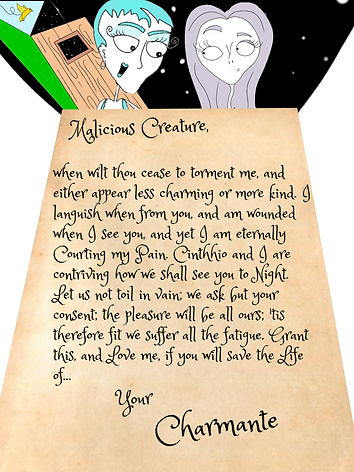 Malicious Creature,
when wilt thou cease to torment me, and
either appear less charming or more kind. I
languish when from you, and am wounded
when I see you, and yet I am eternally
Courting my Pain. Cinthhio and I are
contriving how we shall see you to Night.
Let us not toil in vain; we ask but your
consent; the pleasure will be all ours; 'tis
therefore fit we suffer all the fatigue. Grant
this, and Love me, if you will save the Life
of...
Your
Charmante